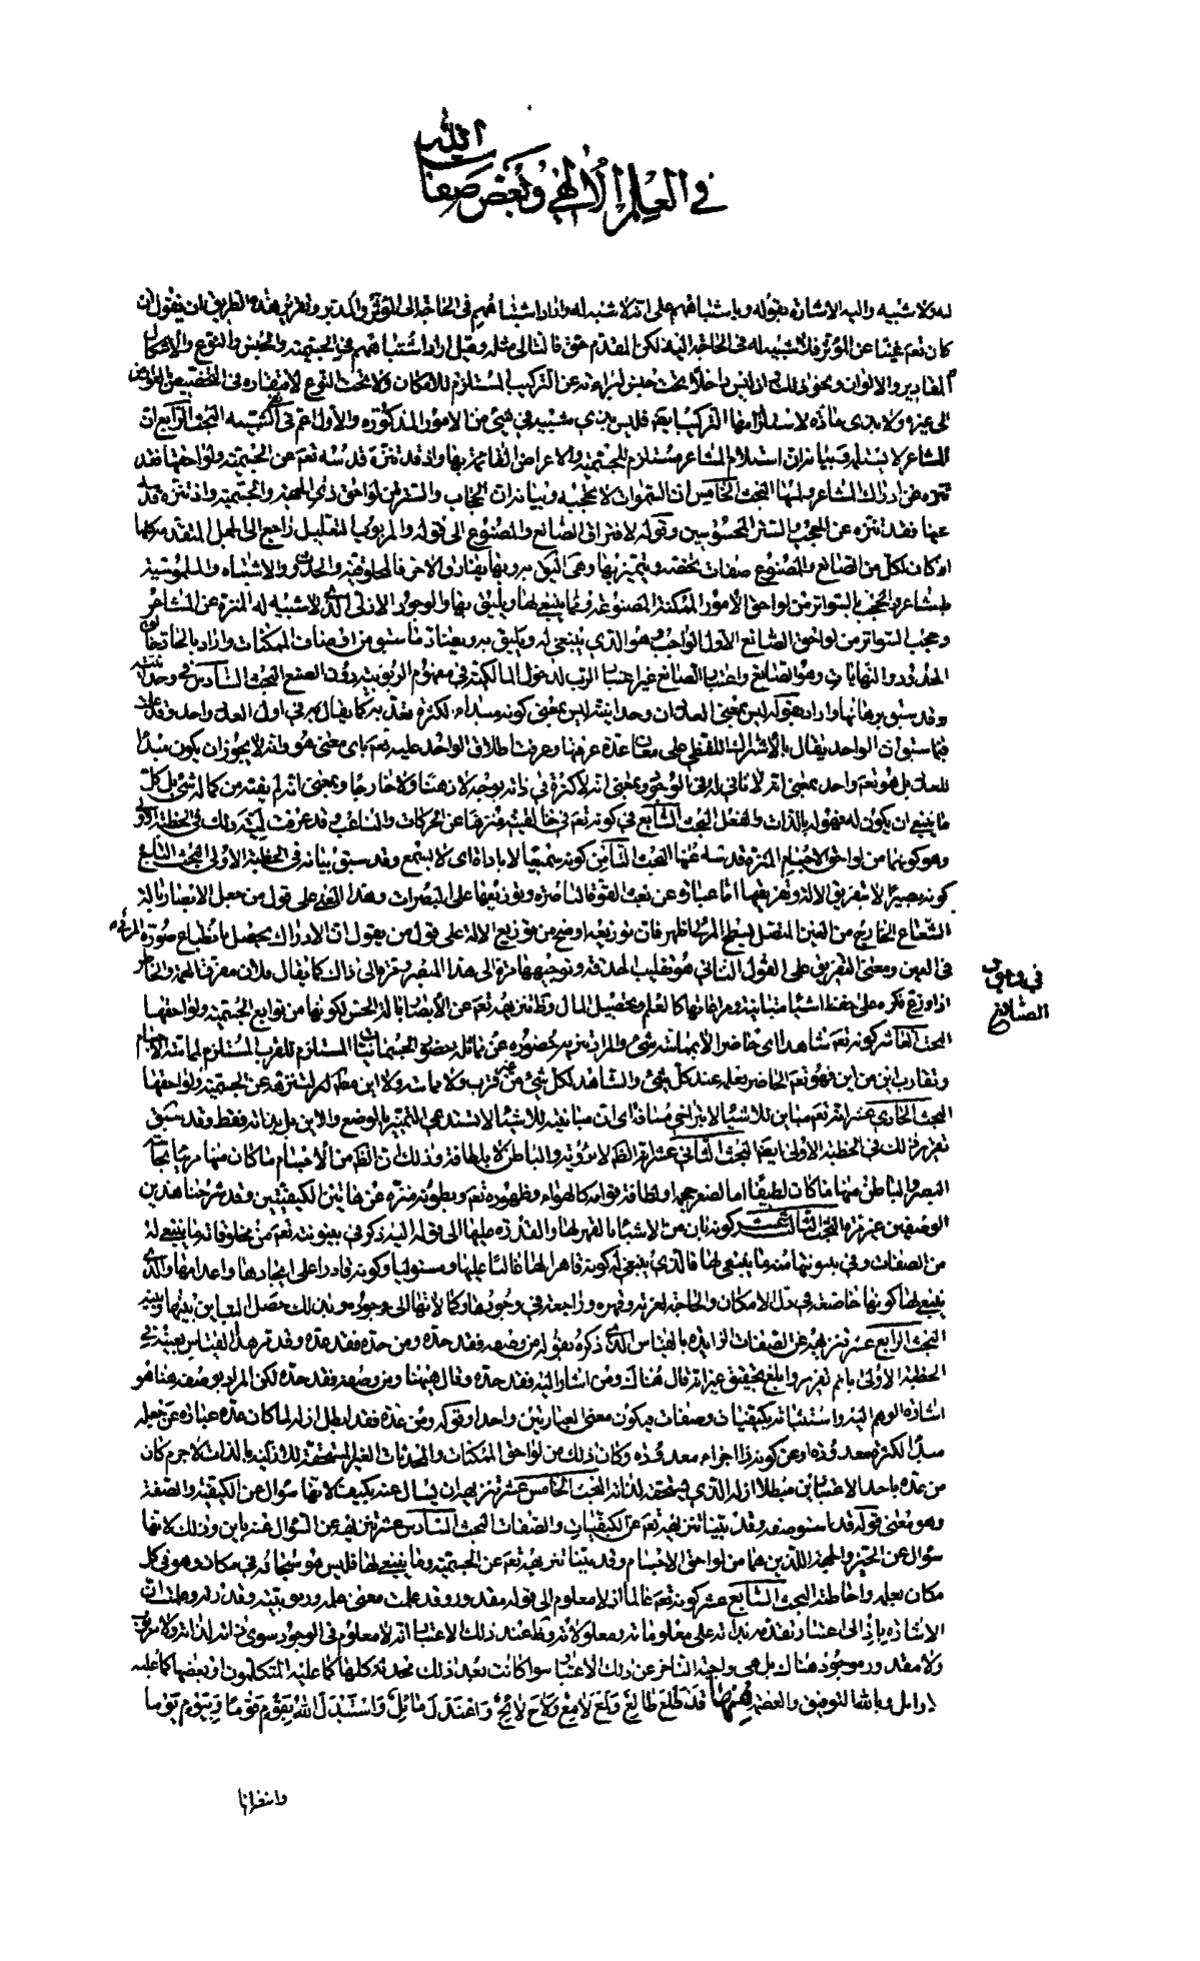 في العلم الالهي وبعض صفات الله
له ولا شبيه واليه الاشارة بقوله وباشتباههم على ان لا شبه له واراد اشتباههم في الحاجة الى المؤثر والمدبر وتقرير هذه الطريق ان يقول ان
كان تعم غنيا عن المؤثر فلا شبيه له في الحاجة اليه لكن المقدم حق فالتالي مثله وقيل اراد اشتباههم في الجسمية والجنس والنوع والاشكال
والمقادير والالوان ونحو ذلك اذ ليس داخلا تحت جنس لبراءته عن التركيب المستلزم للامكان ولا تحت النوع لافتقاره في التخصيص بالعوارض
الى غيره ولا بذي مادة لاستلزامها التركيب ايضا فليس بذي شبيه في شيء من الامور المذكورة والاول اعم في نفي الشبيه البحث الرابع ان
المشاعر لا تستلمه وبيانه ان استلام المشاعر مستلزم للجسمية والاعراض القائمة بها واذ قد تنزه قدسه تعم عن الجسمية ولواحقها فقد
تنزه عن ادراك المشاعر ولمسها البحث الخامس ان السواتر لا تحجبه وبيانه ان الحجاب والستر من لواحق ذي الجهة والجسمية واذ تنزه قدسه
عنها فقد تنزه عن الحجب والستر المحسوسين وقوله لافتراق الصانع والمصنوع الى قوله والمربوب التعليل راجع الى الجمل المتقدمة كلها
اذ كان لكل من الصانع والمصنوع صفات تخصه ويتميز بها وهي اليق به وبها يفارق الاخر فالمخلوقية والحدوث والاشتباه والملموسية
بالمشاعر والحجب بالسواتر من لواحق الامور الممكنة المصنوعة ومما ينبغي لها ويليق بها والوجود الازلي الذي لا شبيه له المنزه عن المشاعر
وحجب السواتر من لواحق الصانع الاول الواجب وهو الذي ينبغي له ويليق به ويضاد ما سبق من اوصاف الممكنات واراد بالحاد خالق
الحدود والنهايات وهو الصانع واعتبار الصانع غير اعتبار الرب لدخول المالكية في مفهوم الربوبية دون الصنع البحث السادس في وحدانيته
وقد سبق برهانها واراد بقوله ليس بمعنى العدد ان وحدانيته ليس بمعنى كونه مبداء لكثرة تعد به كما يقال في اول العدد واحد وقد علمت
فيما سبق ان الواحد يقال بالاشتراك اللفظي على معان عدة عرفتها وعرفت اطلاق الواحد عليه تعم باي معنى هو وانه لا يجوز ان يكون مبدأ
للعدد بل هو تعم واحد بمعنى انه لا ثاني له في الوجود وبمعنى انه لا كثرة في ذاته بوجه لا ذهنا ولا خارجا وبمعنى انه لم يفته من كماله شيء بل كل
ما ينبغي ان يكون له فهو له بالذات والفعل البحث السابع في كونه تعم في خالقيته منزها عن الحركات والمتاعب وقد عرفت لمية ذلك في الخطبة الاولى
وهو كونها من لواحق الاجسام المنزه قدسه عنها البحث الثامن كونه سميعا لا باداة اي لا بسمع وقد سبق بيانه في الخطبة الاولى البحث التاسع
كونه بصيرا لا بتفريق الالة وتفريقها اما عبارة عن بعث القوة الباصرة وتوزيعها على المبصرات وهذا المعنى على قول من جعل الابصار بالة
الشعاع الخارج من العين المتصل بسطح المرئي اظهر فان توزيعه اوضح من توزيع الالة على قول من يقول ان الادراك يحصل بانطباع صورة المرئي
في العين ومعنى التفريق على القول الثاني هو تقليب الحدقة وتوجيهها مرة الى هذا المبصر ومرة الى ذاك كما يقال فلان مفرق الهمة والخاطر
اذا وزع فكره على حفظ اشياء متباينة ومراعاتها كالعلم وتحصيل المال وظ تنزيهه تعم عن الابصار بالة الحس لكونها من توابع الجسمية ولواحقها
في وجوب
الصانع
البحث العاشر كونه تعم شاهدا اي حاضرا لا بمماسة شيء والمراد تنزيه حضوره عن مماثلة حضور الجسمانيات المستلزم للقرب المستلزم لمماسة الاجسام
وتقارب اين من اين فهو تعم الحاضر بعلمه عند كل شيء والشاهد لكل شيء من غير قرب ولا مماسة ولا اين مطلقا لتنزهه عن الجسمية ولواحقها
البحث الحادي عشر انه تعم مباين للاشياء لا بتراخي مسافة اي ان مباينته للاشياء لا تستدعي التميز بالوضع والاين بل بذاته فقط وقد سبق
تقرير ذلك في الخطبة الاولى ايضا البحث الثاني عشر انه الظ لا برؤية والباطن لا بلطافة وذلك ان الظ من الاجسام ما كان منها مرئيا بحاسة
البصر والباطن منها ما كان لطيفا اما لصغر حجمه او لطافة قوامه كالهواء وظهوره تعم وبطونه منزه عن هاتين الكيفيتين وقد شرحنا هذين
الوصفين غير مرة البحث الثالث عشر كونه بان من الاشياء بالقهر لها والقدرة عليها الى قوله اليه ذكر في بينونته تعم من مخلوقاته ما ينبغي له
من الصفات وفي بينونتها منه ما ينبغي لها فالذي ينبغي له كونه قاهرا لها غالبا عليها ومستوليا وكونه قادرا على ايجادها واعدامها والذي
ينبغي لها كونها خاضعة في ذل الامكان والحاجة لعزته وقهره وراجعة في وجودها وكمالاتها الى وجوده وبذلك حصل التباين بينها وبينه
البحث الرابع عشر تنزيهه عن الصفات الزايدة بالقياس الذي ذكره بقوله من وصفه فقد حده ومن حده فقد عده وقد مر هذا القياس بعينه في
الخطبة الاولى باتم تقرير وابلغ تحقيق غير انه قال هناك ومن اشار اليه فقد حده وقال هيهنا ومن وصفه فقد حده لكن المراد بوصفه هنا هو
اشارة الوهم اليه واستثباته بكيفيات وصفات فيكون معنى العبارتين واحدا وقوله ومن عده فقد ابطل ازله لما كان عده عبارة عن جعله
مبدأ لكثرة معدودة او عن كونه ذا اجزاء معدودة وكان ذلك من لواحق الممكنات والمحدثات الغير المستحقة للازلية بالذات لا جرم كان
من عده باحد الاعتبارين مبطلا ازله الذي يستحقه لذاته البحث الخامس عشر تنزيهه ان يسال عنه بكيف لانها سؤال عن الكيفية والصفة
وهو معنى قوله فقد استوصفه وقد بينا تنزيهه تعم عن الكيفيات والصفات البحث السادس عشر تنزيهه عن السؤال عنه باين وذلك لانها
سؤال عن الحيز والجهة اللذين هما من لواحق الاجسام وقد بينا تنزيهه تعم عن الجسمية وما ينبغي لها فليس هو سبحانه في مكان وهو في كل
مكان بعلمه واحاطته البحث السابع عشر كونه تعم عالما اذ لا معلوم الى قوله مقدور وقد علمت معنى علمه وربوبيته وقدرته وعلمت ان
الاشارة باذ الى اعتبار تقدمه بذاته على معلوماته ومعلولاته وظ عند ذلك الاعتبار انه لا معلوم في الوجود سوى ذاته لذاته ولا مربوب
ولا مقدور موجود هناك بل هي واجبة التاخر عن ذلك الاعتبار سوا كانت بعد ذلك محدثة كلها كما عليه المتكلمون او بعضها كما عليه
الاوائل وبالله التوفيق والعصمة منها قد طلع طالع ولمع لامع ولاح لائح واعتدل مائل واستبدل الله بقوم قوما وبيوم يوما
وانتظرنا